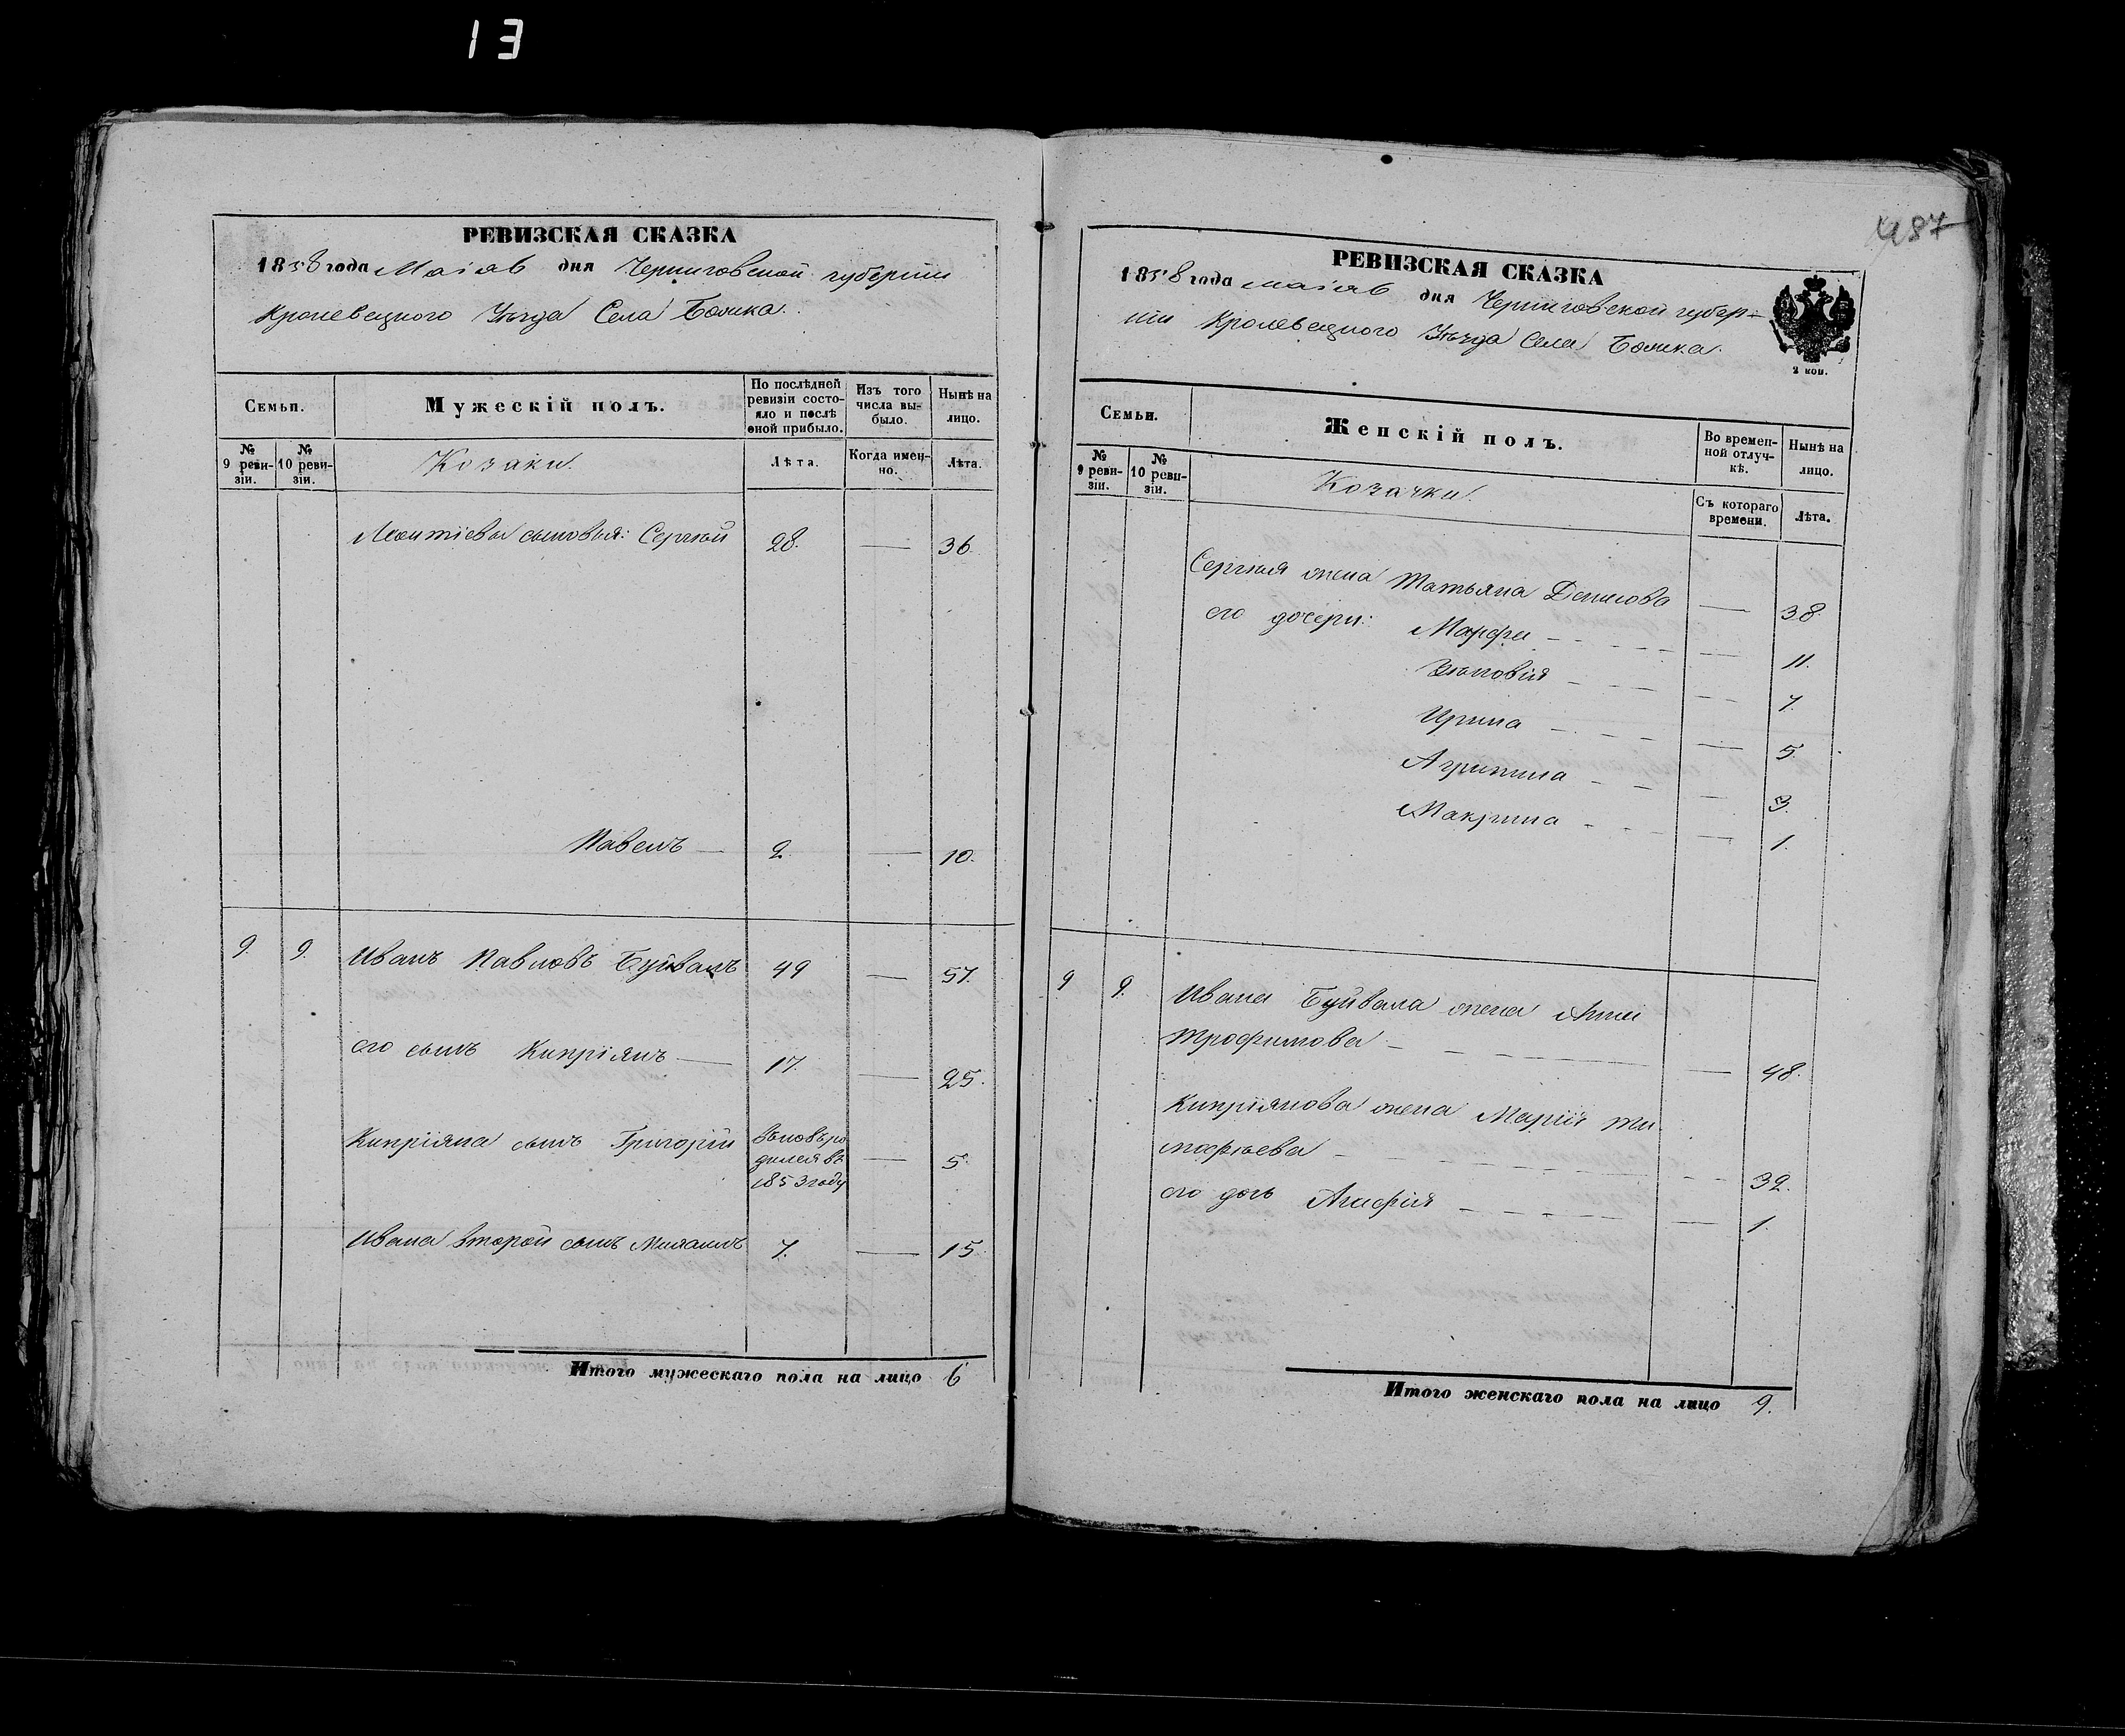 13
РЕВИЗСКАЯ СКАЗКА
1858 года Маія 6 дня Черниговской губерніи
Кролевецкого Уѣзда Села
Семьи.
Мужескій полъ.
По послѣдней ревизіи состояло и послѣ оной прибыло.
Изъ того числа выбыло.
Нынѣ на лицо.
№ 9 ревизіи.
№ 10 ревизіи.
Козаки.
Лѣта.
Когда именно.
Лѣта.
Леонтіевы сыновья: Сергѣй 28. — 36
Павелъ — 2. — 10.
9. 9. Иванъ Павловъ Буйвалъ 49 — 57.
его сынъ Кипріянъ — 17. — 25.
Кипріяна сынъ Григорій вновь ро
дился въ — 5.
1853 году
Ивана второй сынъ Михаилъ 7. — 15
Итого мужескаго пола на лицо 6
487
РЕВИЗСКАЯ СКАЗКА
1858 года маія 6 дня Черниговской губер-
ніи Кролевецкого Уѣзда Села
2 коп.
Семьи.
Женскій полъ.
Во временной отлучкѣ.
Нынѣ на лицо.
№ 9 ревизіи.
№ 10 ревизіи.
Козачки.
Съ котораго времени.
Лѣта.
Сергѣя жена Татьяна Денисова — 38.
его дочери: Марфа — 11.
Зѣновія — 7.
Ирина — 5.
Агрипина — 3.
Макрина — 1.
9 9. Ивана Буйвала жена Анна
Трофимова — 48.
Кипріянова жена Марія Ти
мофѣева — 32.
его дочь Агафія — 1.
Итого женскаго пола на лицо 9.